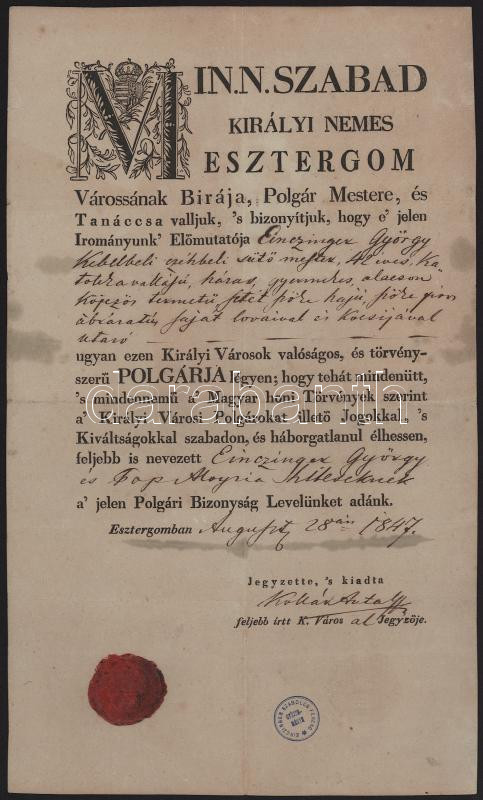 MIN.N. SZABAD
KIRÁLYI NEMES
ESZTERGOM
Várossának Birája, Polgár Mestere, és
Tanáccsa valljuk, 's bizonyítjuk, hogy e' jelen
Irományunk' Előmutatója Einczinger György
sütő mester, 42 éves, ka-
házas, gyermekes, alacson
termetű, sötét szőke hajú, szőke piros
saját lovaival és kocsijával
utazó
ugyan ezen Királyi Városok valóságos, és törvény-
szerű POLGÁRJA légyen; hogy tehát mindenütt,
's mindennemű a' Magyar honi Törvények szerint
a' Királyi Városi Polgárokat illető Jogokkal, 's
Kiváltságokkal szabadon, és háborgatlanul élhessen,
feljebb is nevezett Einczinger György
és
a' jelen Polgári Bizonyság Levelünket adánk.
Esztergomban August 28án 1847.
Jegyzette, 's kiadta
Kollár Antal
feljebb írtt K. Város al Jegyzője.
darabanth